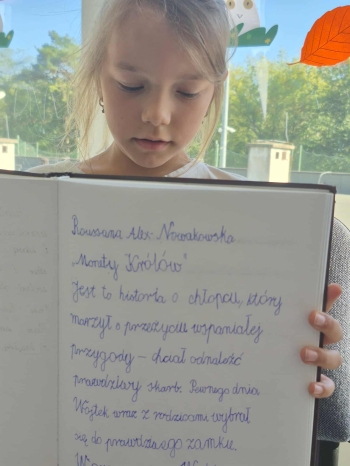 Roussana Alex-Nowakowska
„Monety Królów"
Jest to historia o chłopcu, który
marzył o przeżyciu wspaniałej
przygody – chciał odnaleźć
prawdziwy skarb. Pewnego dnia
Wojtek wraz z rodzicami wybrał
się do prawdziwego zamku.